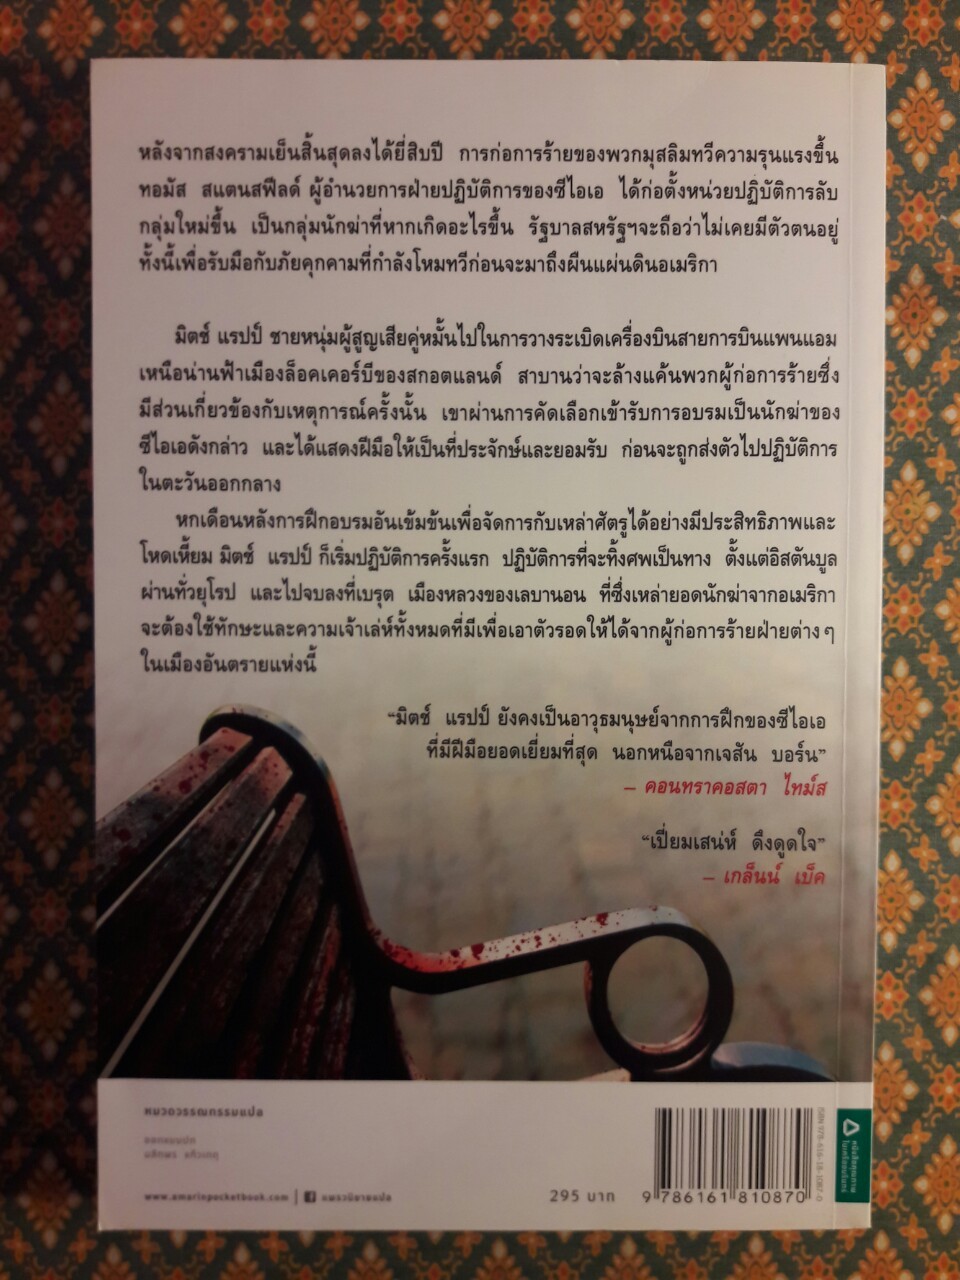 หลังจากสงครามเย็นสิ้นสุดลงได้ยี่สิบปี การก่อการร้ายของพวกมุสลิมทวีความรุนแรงขึ้น
ทอมัส สแตนสฟีลด์ ผู้อำนวยการฝ่ายปฏิบัติการของซีไอเอ ได้ก่อตั้งหน่วยปฏิบัติการลับ
กลุ่มใหม่ขึ้น เป็นกลุ่มนักฆ่าที่หากเกิดอะไรขึ้น รัฐบาลสหรัฐฯจะถือว่าไม่เคยมีตัวตนอยู่
ทั้งนี้เพื่อรับมือกับภัยคุกคามที่กำลังโหมทวีก่อนจะมาถึงผืนแผ่นดินอเมริกา
มิตช์ แรปป์ ชายหนุ่มผู้สูญเสียคู่หมั้นไปในการวางระเบิดเครื่องบินสายการบินแพนแอม
เหนือน่านฟ้าเมืองล็อคเคอร์บีของสกอตแลนด์ สาบานว่าจะล้างแค้นพวกผู้ก่อการร้ายซึ่ง
มีส่วนเกี่ยวข้องกับเหตุการณ์ครั้งนั้น เขาผ่านการคัดเลือกเข้ารับการอบรมเป็นนักฆ่าของ
ซีไอเอดังกล่าว และได้แสดงฝีมือให้เป็นที่ประจักษ์และยอมรับ ก่อนจะถูกส่งตัวไปปฏิบัติการ
ในตะวันออกกลาง
หกเดือนหลังการฝึกอบรมอันเข้มข้นเพื่อจัดการกับเหล่าศัตรูได้อย่างมีประสิทธิภาพและ
โหดเหี้ยม มิตช์ แรปป์ ก็เริ่มปฏิบัติการครั้งแรก ปฏิบัติการที่จะทิ้งศพเป็นทาง ตั้งแต่อิสตันบูล
ผ่านทั่วยุโรป และไปจบลงที่เบรุต เมืองหลวงของเลบานอน ที่ซึ่งเหล่ายอดนักฆ่าจากอเมริกา
จะต้องใช้ทักษะและความเจ้าเล่ห์ทั้งหมดที่มีเพื่อเอาตัวรอดให้ได้จากผู้ก่อการร้ายฝ่ายต่าง ๆ
ในเมืองอันตรายแห่งนี้
“มิตช์ แรปป์ ยังคงเป็นอาวุธมนุษย์จากการฝึกของซีไอเอ
ที่มีฝีมือยอดเยี่ยมที่สุด นอกหนือจากเจสัน บอร์น”
– คอนทราคอสตา ไทม์ส
“เปี่ยมเสน่ห์ ดึงดูดใจ”
– เกล็นน์ เบ็ค
หมวดวรรณกรรมแปล
ออกแบบปก
www.amarinpocketbook.com | แพรวนิยายแปล
295 บาท
ISBN 978-616-18-1087-0
9 786161 810870